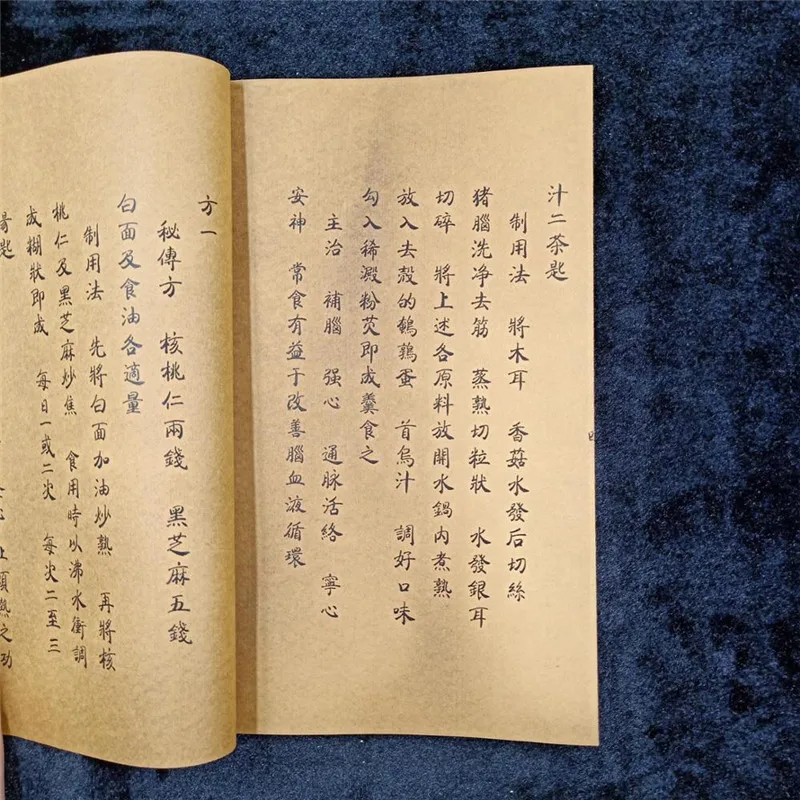 汁二茶匙
制用法 將木耳 香菇水發后切絲
猪腦洗净去筋 蒸熟切粒狀 水發銀耳
切碎 將上述各原料放開水鍋内煮熟
放入去殼的鹌鹑蛋 首烏汁 調好口味
勾入稀澱粉芡即成羹食之
主治 補腦 强心 通脉活絡 寧心
安神 常食有益于改善腦血液循環
方一
秘傳方 核桃仁兩錢 黑芝麻五錢
白面及食油各適量
制用法 先將白面加油炒熟 再將核
桃仁及黑芝麻炒焦 食用時以沸水衝調
成糊狀即成 每日一或二次 每次二至三
湯匙